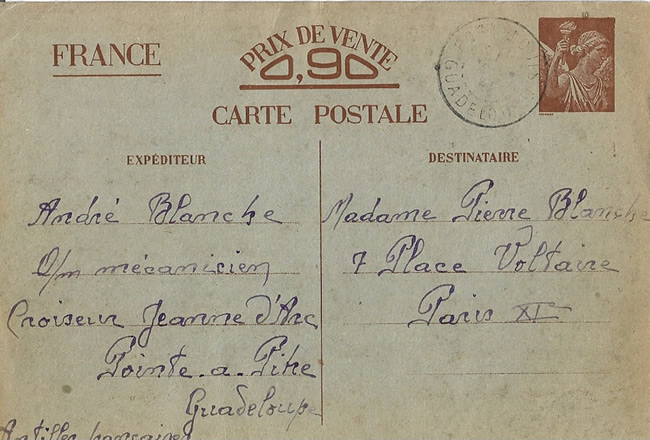 FRANCE
PRIX DE VENTE
0,90
CARTE POSTALE
GUADELOUPE
EXPÉDITEUR
André Blanche
O/m mécanicien
Croiseur Jeanne d'Arc
Pointe-a-Pitre
Guadeloupe
Antilles françaises
DESTINATAIRE
Madame Pierre Blanche
7 Place Voltaire
Paris XI